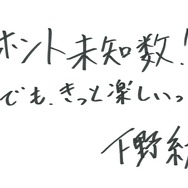 ホント未知数!
でも、きっと楽しいっ
下野紘